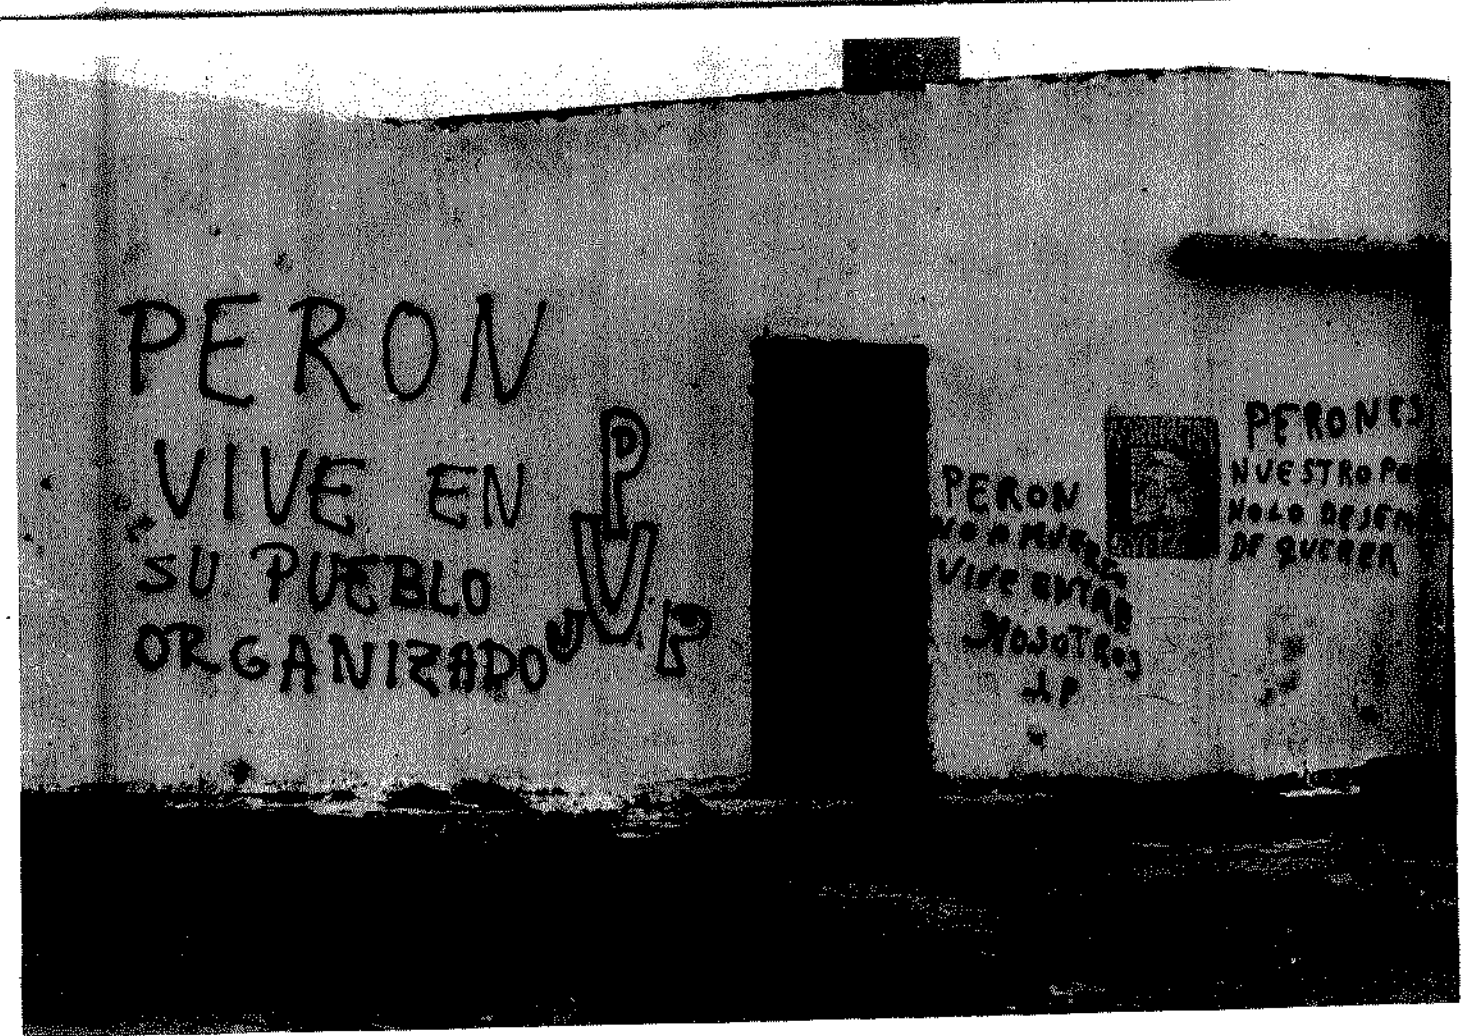 PERON
VIVE EN
SU PUEBLO
ORGANIZADO
P
V
J P
PERON
NO A MUERTO
VIVE ENTRE
NOSOTROS
JP
PERON ES
NUESTRO
NO LO DEJEN
DE QUERER